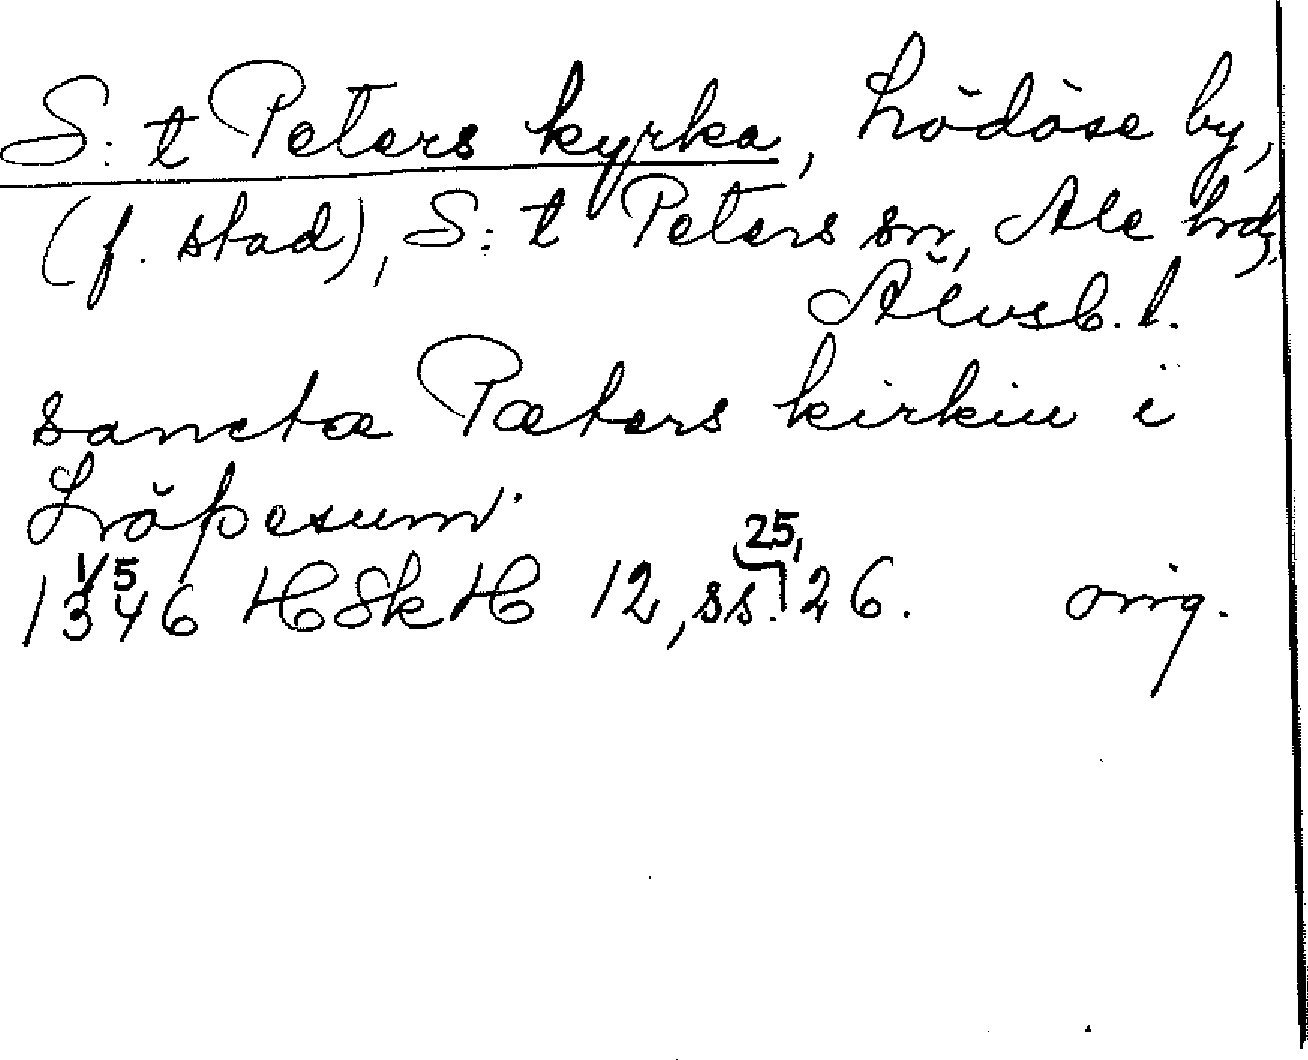 S:t Peters kyrka, Lödöse by,
(f. stad), S:t Peters sn, Ale hd,
Älvsb. l.
sancta Pæters kirkiu i
Lröþesum.
1/5
1346 HSkH 12, ss. 25, 26. orig.